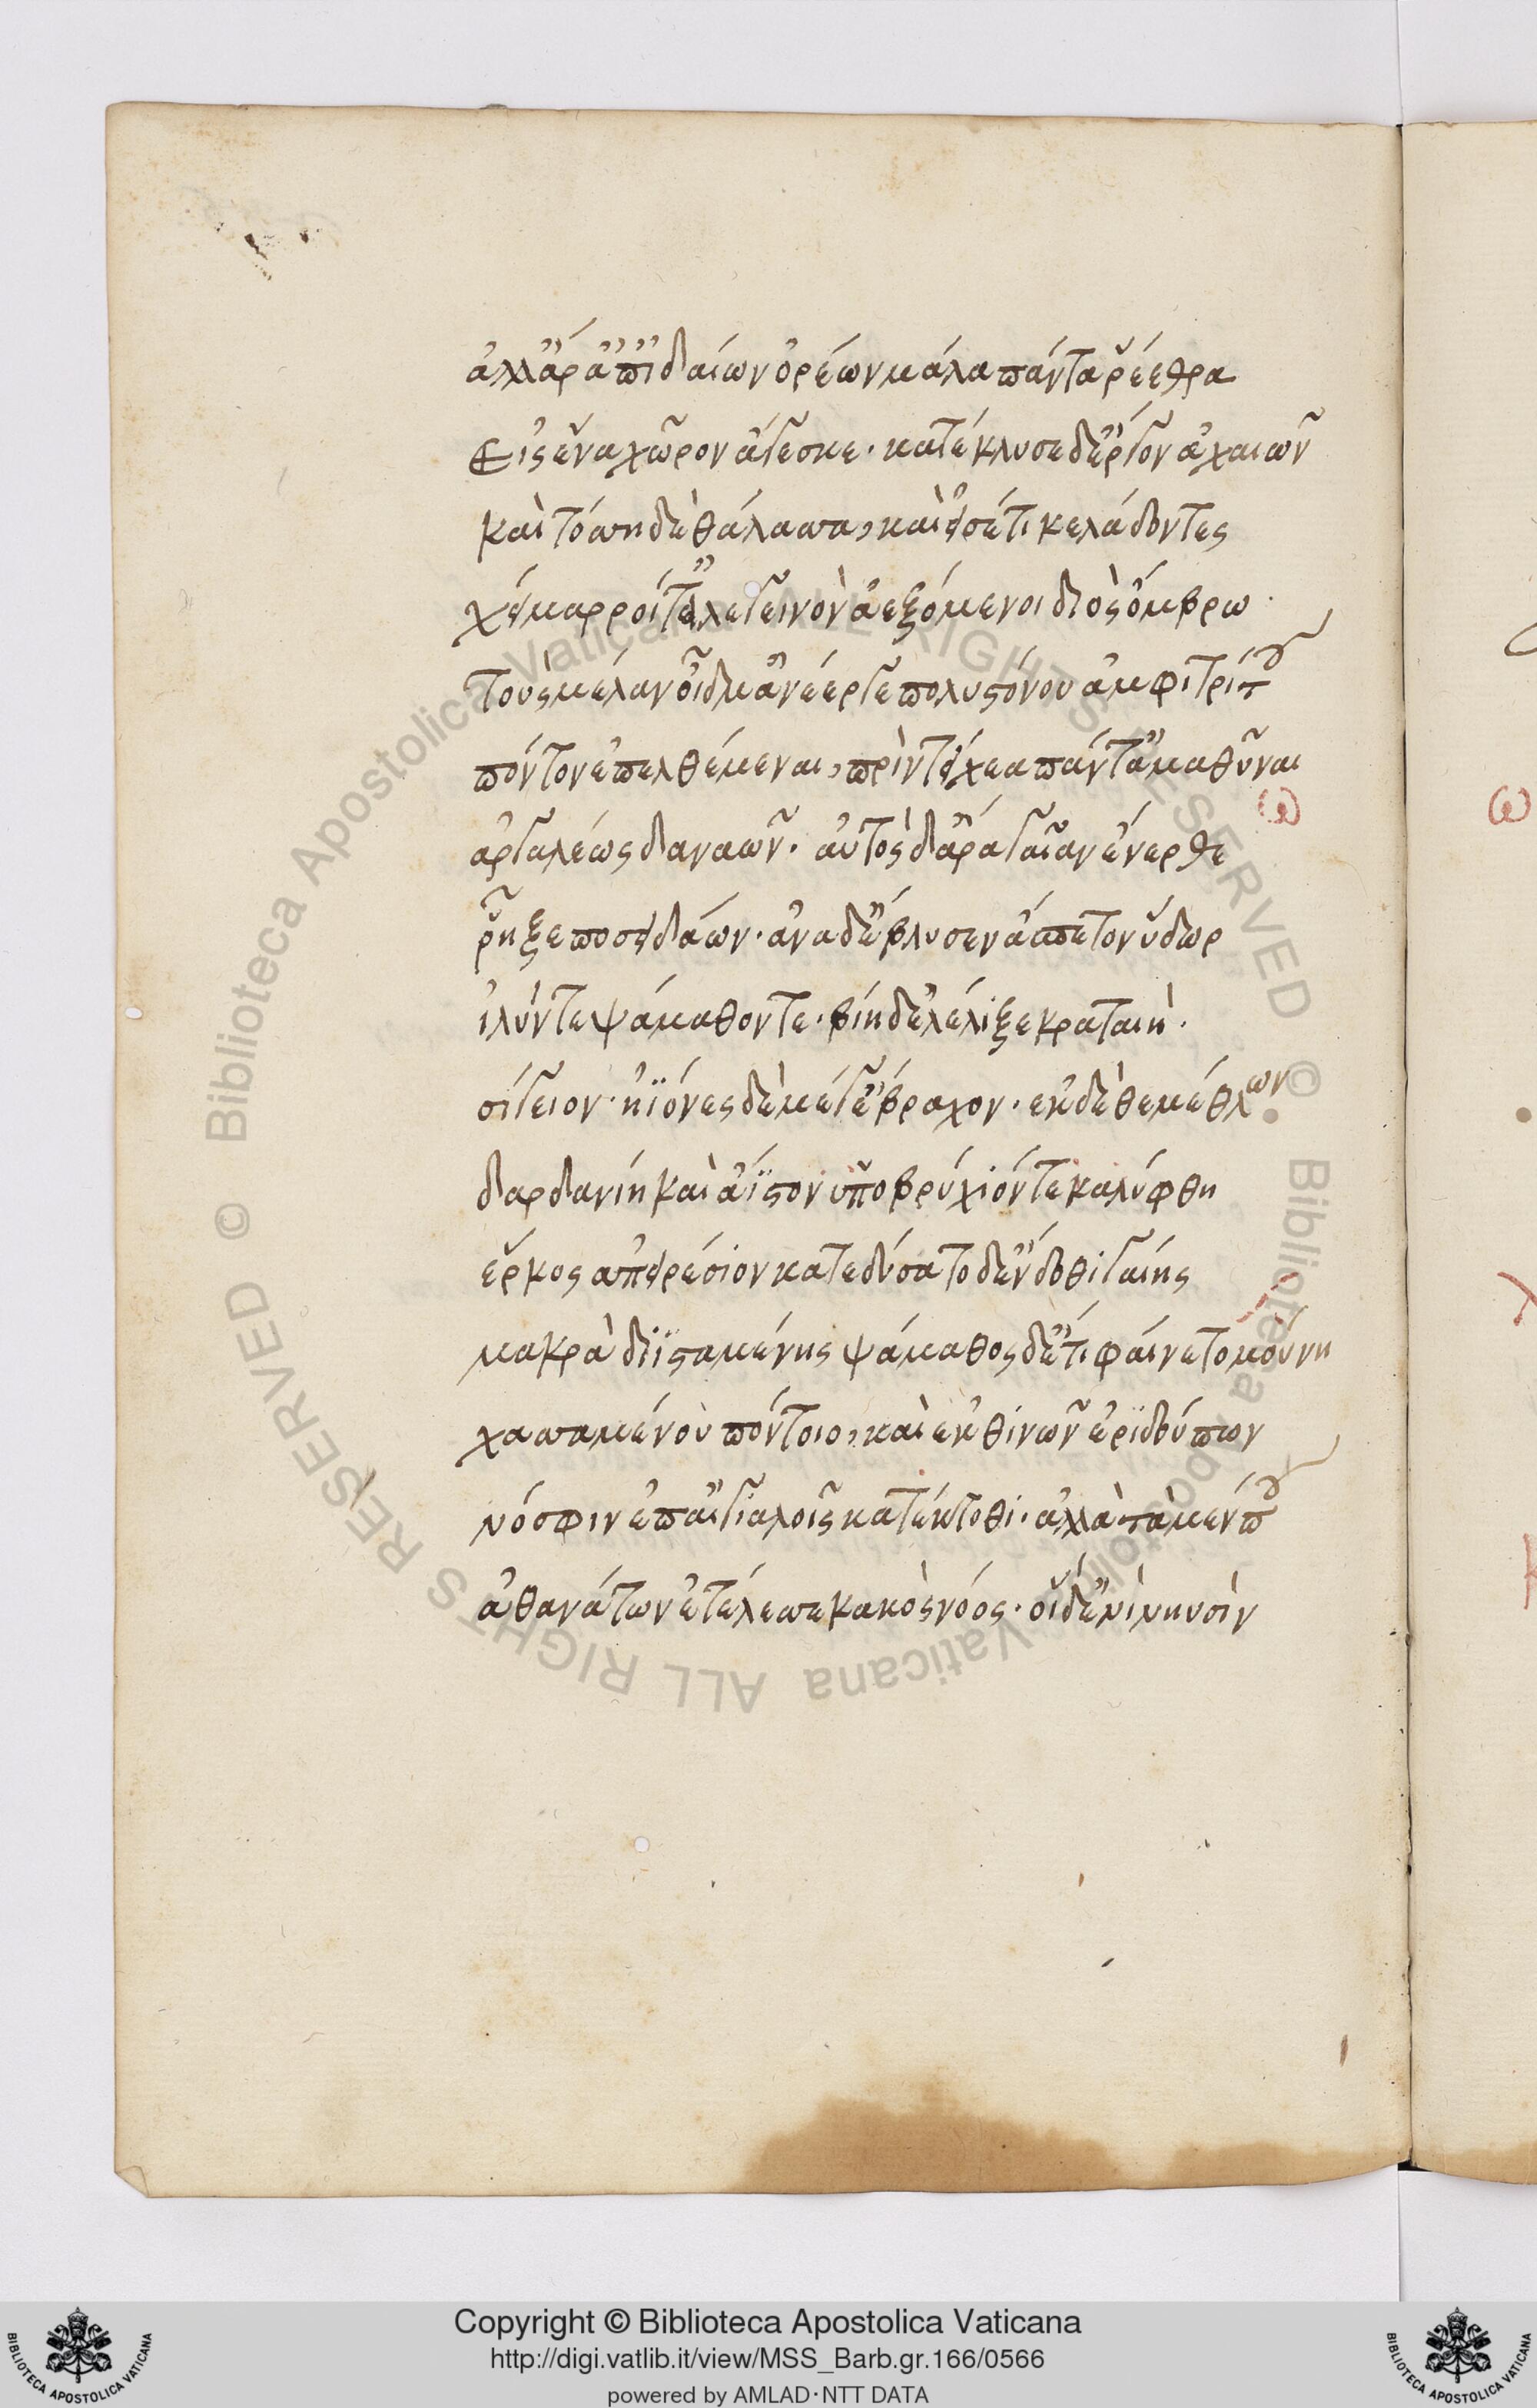 ἀλλ' ἄρ' ἀπ' ἰδαίων ὀρέων μάλα πάντα ῥέεθρα
Εἰς ἕνα χῶρον ἄγεσκε· κατέκλυσε δ' ἔργον ἀχαιῶν
καὶ τόσση δὲ θάλασσα, καὶ εἰσέτι κελάδοντες
χείμαρροί τ' ἀλεγεινὸν ἀεξόμενοι διὸς ὄμβρω·
τοὺς μέλαν οἶδμ' ἀνέεργε πολυστόνου ἀμφιτρίτης
πόντον ἐπελθέμεναι, πρὶν τείχεα πάντ' ἀμαθῦναι
ἀργαλέως δαναῶν· αὐτὸς δ' ἄρα γαῖαν ἔνερθε
ῥῆξε ποσειδάων· ἀνα δ' ἔβλυσεν ἄσπετον ὕδωρ
ἰλύν τε ψάμαθόν τε· βίη δ' ἐλέλιξε κραταιὴ·
σίγειον· ἠϊόνες δὲ μέγ' ἔβραχον· ἐκ δὲ θεμέθλων
δαρδανίη καὶ ἄϊστον ὑποβρύχιόν τε καλύφθη
ἕρκος ἀπειρέσιον κατεδύσατο δ' ἔνδοθι γαίης
μακρὰ διϊσταμένης ψάμαθος δ' ἔτι φαίνετο μούνη
χασσαμένου πόντοιο, καὶ ἐκ θινῶν ἐριδούπων
νόσφιν ἐπ' αἰγιαλοῖς κατ' ἐκτοθι· ἀλλὰ τὰ μέν που
ἀθανάτων ἐτέλεσσε κακὸς νόος· οἱ δ' ἐνὶ νηυσὶν
ω
Copyright © Biblioteca Apostolica Vaticana
http://digi.vatlib.it/view/MSS_Barb.gr.166/0566
powered by AMLAD·NTT DATA